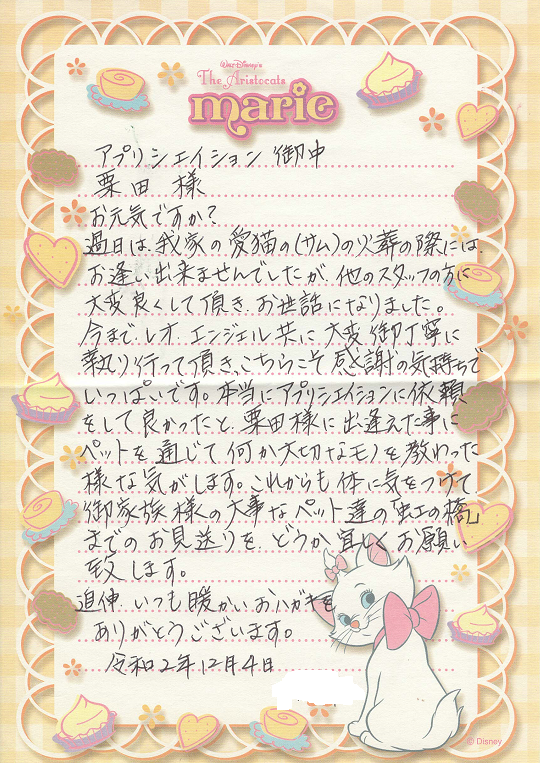 Walt Disney's
The Aristocats
marie
アプリシエイション 御中
栗田 様
お元気ですか?
過日は、我家の愛猫の(サム)の火葬の際には、
お逢い出来ませんでしたが、他のスタッフの方に
大変良くして頂き、お世話になりました。
今まで、レオ、エンジェル共に大変御丁寧に
執り行って頂き、こちらこそ感謝の気持ちで
いっぱいです。本当にアプリシエイションに依頼
をして良かったと、栗田様に出逢えた事に
ペットを通じて何か大切なモノを教わった
様な気がします。これからも体に気をつけて
御家族様の大事なペット達の「虹の橋」
までのお見送りを、どうか宜しくお願い
致します。
追伸、いつも暖かいおハガキを
ありがとうございます。
令和2年12月4日
© Disney